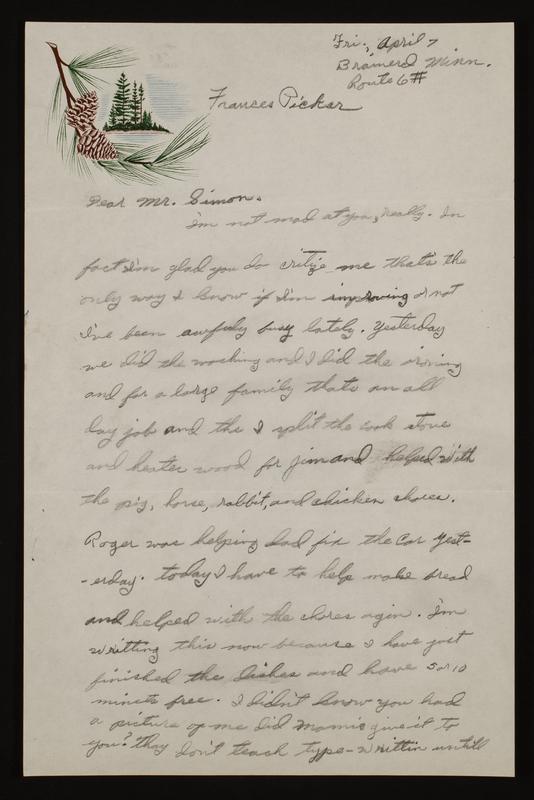 Fri., April 7
Brainerd Minn.
Route 6#
Frances Pickar
Dear Mr. Simon.
I'm not mad at you, really. In
fact I'm glad you do critize me that's the
only way I know if I'm improving or not
I've been awfuly busy lately. Yesterday
we did the washing and I did the ironing
and for a large family thats an all
day job and the I split the cook stove
and heater wood for Jim and helped with
the pig, horse, rabbit, and chicken chores.
Roger was helping dad fix the car yest-
-erday. today I have to help make bread
and helped with the chores agin. I'm
writting this now because I have just
finished the dishes and have 5 or 10
minute free. I didn't know you had
a picture of me did Mamie give it to
you? they don't teach type-writtin untill